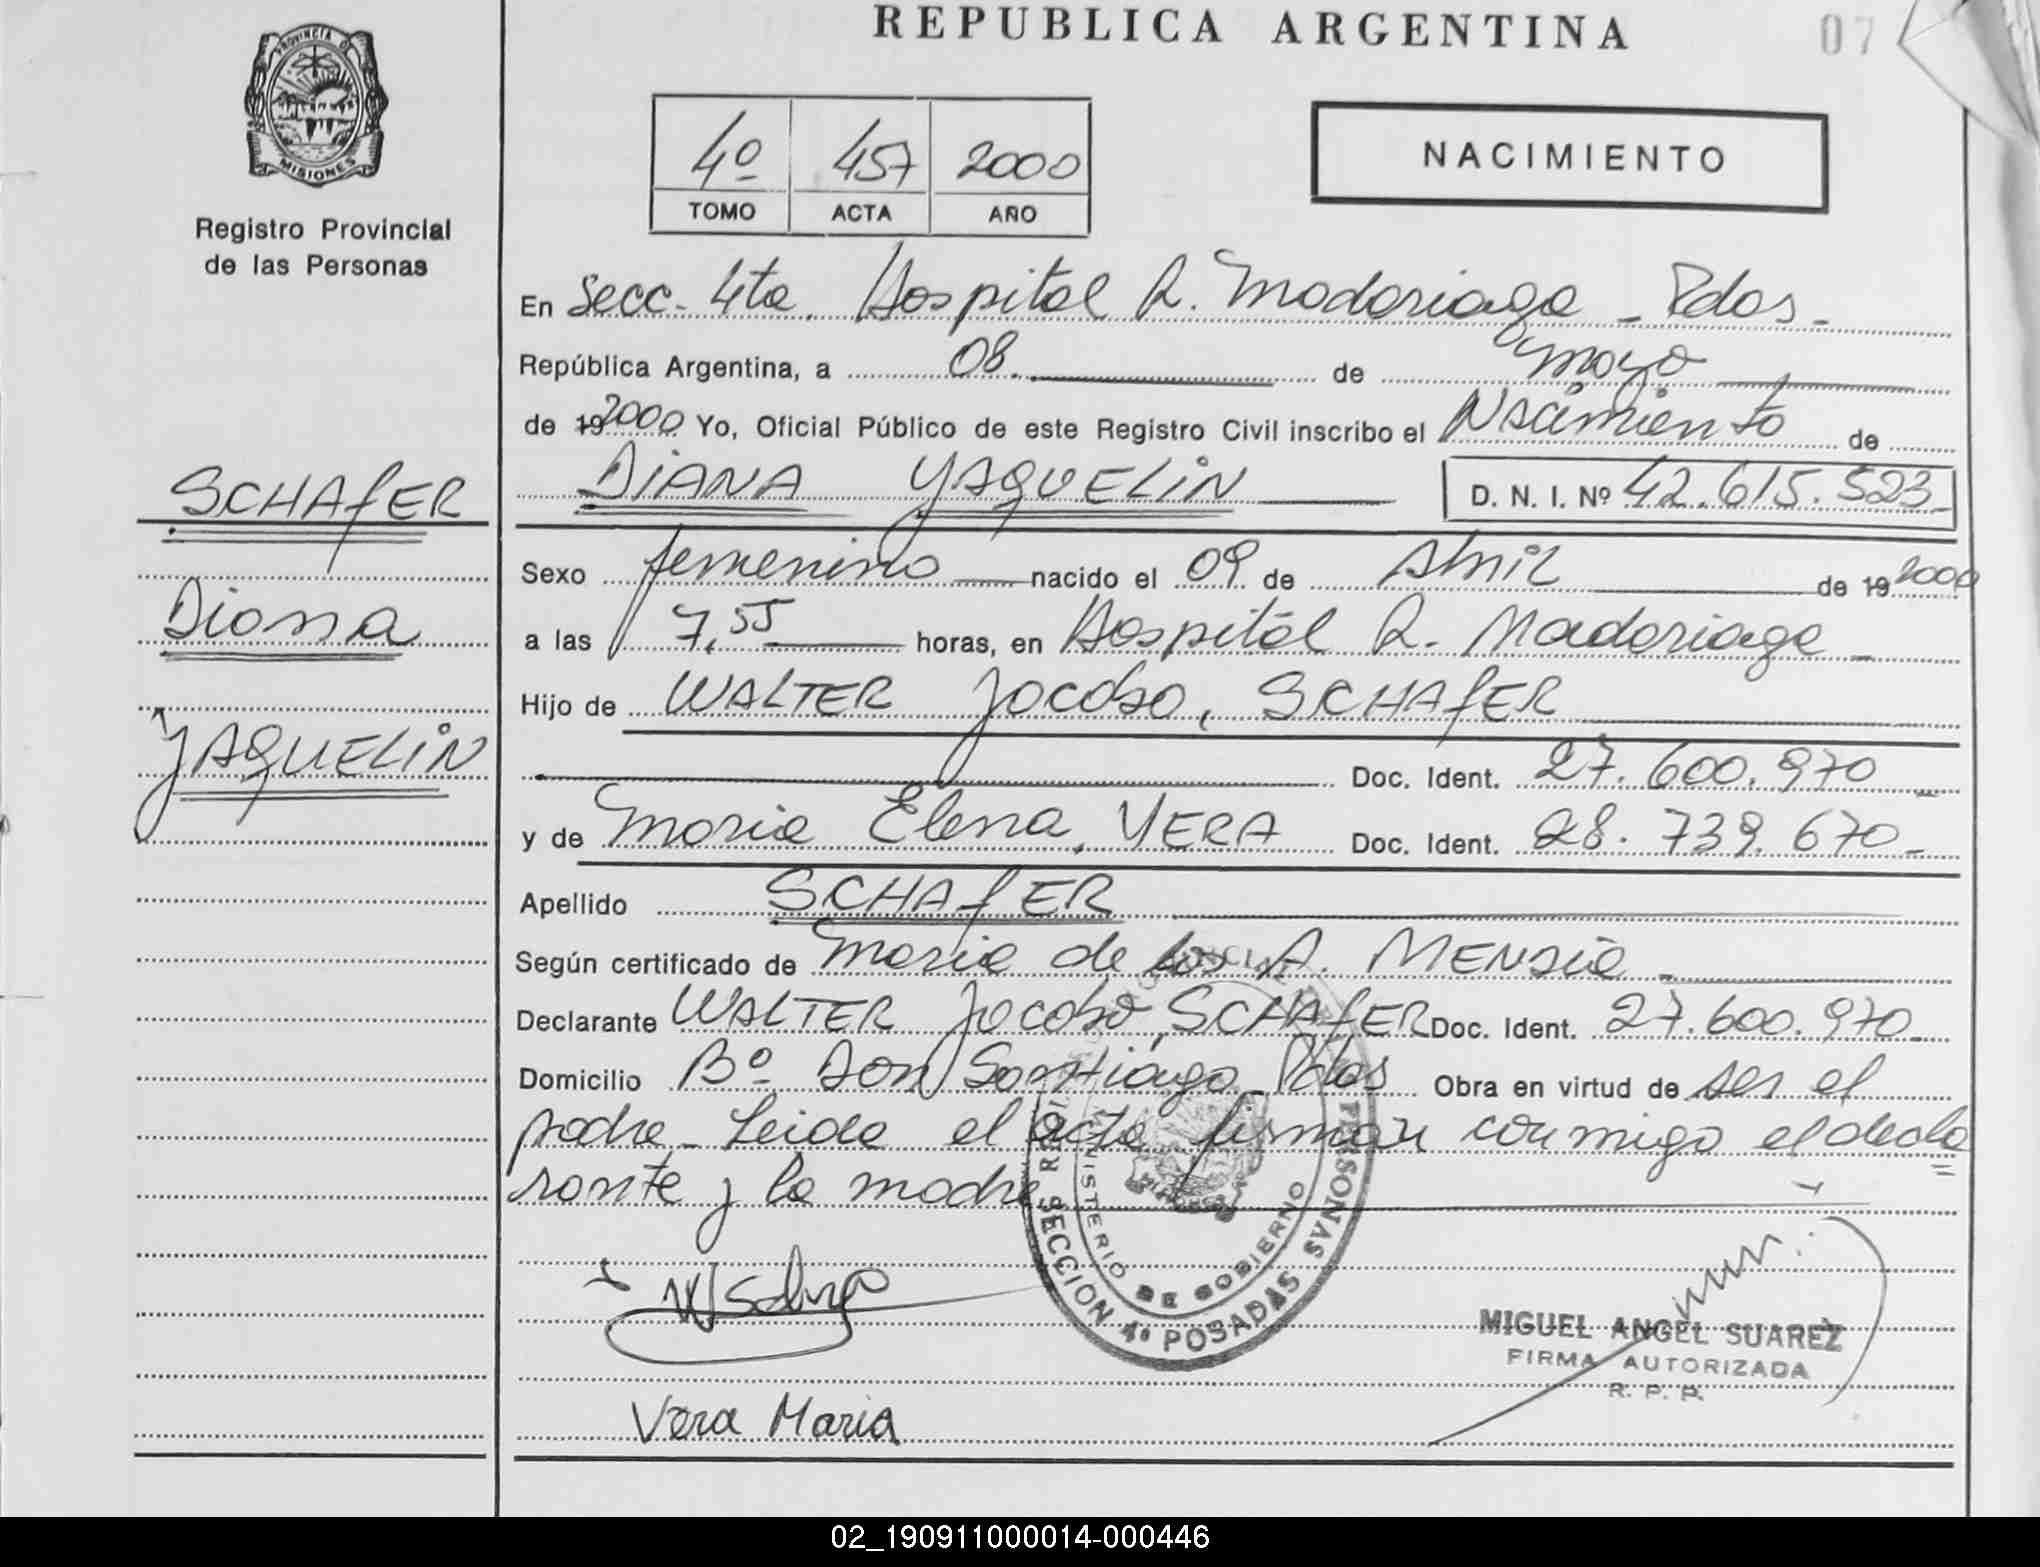 REPUBLICA ARGENTINA
07
PROVINCIA D
MISIONES
Registro Provincial
de las Personas
4º 457 2000
TOMO ACTA AÑO
NACIMIENTO
En Secc- 4ta. Hospital R. Madariaga - Pdas-
República Argentina, a 08. de mayo
de 19 2000 Yo, Oficial Público de este Registro Civil inscribo el Nacimiento de
DIANA YAQUELIN D. N. I. Nº 42.615.523
SCHAfER
Diana
YAQUELIN
Sexo femenino nacido el 09 de Abril de 19 2000
a las 7,55 horas, en Hospital R. Madariaga -
Hijo de WALTER Jacobo, SCHAfER
Doc. Ident. 27.600.970
y de Maria Elena, VERA Doc. Ident. 28.739.670-
Apellido SCHAfER
Según certificado de Maria de los A. MENDIE
Declarante WALTER Jacobo, SCHAfER Doc. Ident. 27.600.970-
Domicilio Bº Don Santiago - Pdas Obra en virtud de ser el
padre - Leida el acta firman conmigo el decla
=
rante y la madre
SECCION 4ª POSADAS
MINISTERIO DE GOBIERNO
PERSONAS
MIGUEL ANGEL SUAREZ
FIRMA AUTORIZADA
R. P. P.
Vera Maria
02_190911000014-000446